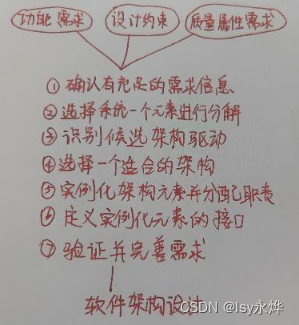 功能需求 设计约束 质量属性需求
① 确认有充足的需求信息
② 选择系统一个元素进行分解
③ 识别候选架构驱动
④ 选择一个适合的架构
⑤ 实例化架构元素并分配职责
⑥ 定义实例化元素的接口
⑦ 验证并完善需求
软件架构设计
CSDN @lsy永烨